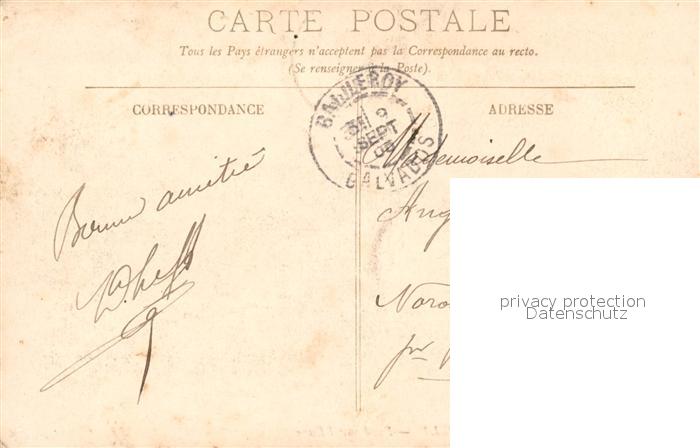 CARTE POSTALE
Tous les Pays étrangers n'acceptent pas la Correspondance au recto.
(Se renseigner à la Poste).
CORRESPONDANCE
ADRESSE
BALLEROY
SEPT
CALVADOS
Mademoiselle
Bonne amitié
privacy protection
Datenschutz